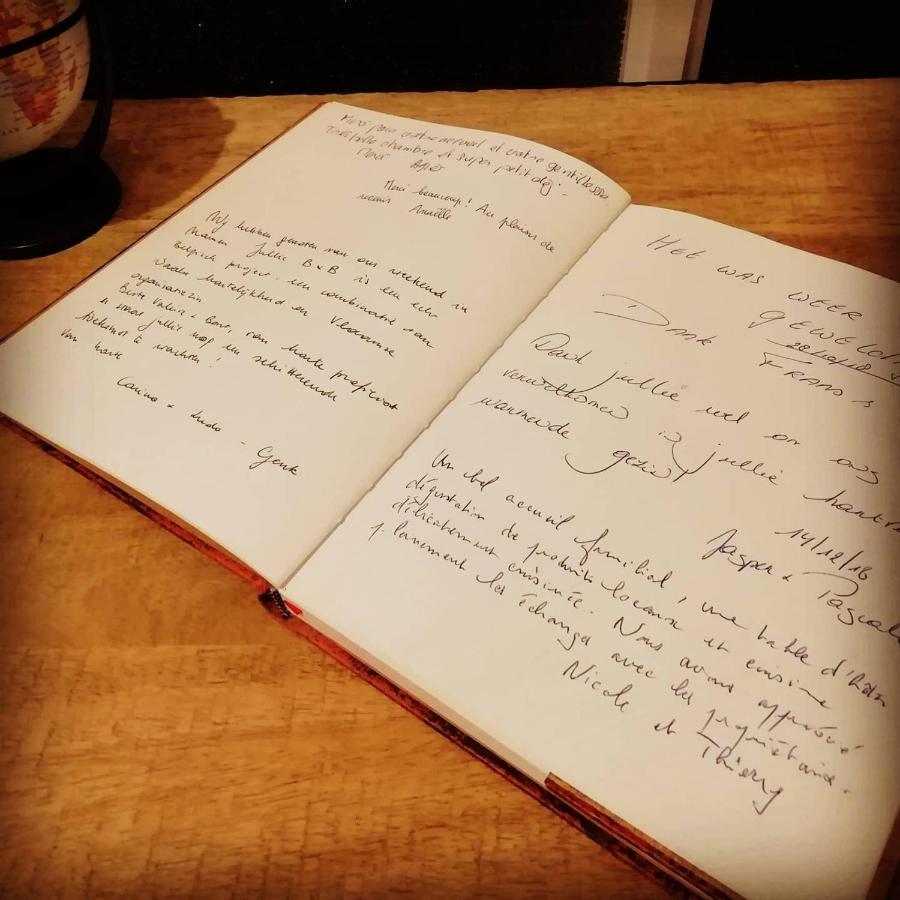 Merci pour votre accueil et votre gentillesse
Très belle chambre et super petit dej.
Merci
Merci beaucoup! Au plaisir de
revenir Anaëlle
Wij hebben genoten van ons weekend in
Namen. Jullie B&B is een echt
Belgisch project: een combinatie van
Waalse hartelijkheid en Vlaamse
organisatiezin
Beste Valérie & Bart, van harte proficiat
& moge jullie nog een schitterende
toekomst te wachten!
Van harte
Carina & Ludo - Genk
HET WAS WEER
GEWELDIG
28/10/18
DANK FRANS &
Dank jullie wel om ons
verwelkomen in jullie
warmende gezin!
14/12/18
Jasper & Pascale
Un bel accueil familial, une table d'hôtes
dégustation de produits locaux et cuisine
délicatement cuisinée. Nous avons apprécié
pleinement les échanges avec les propriétaires.
Nicole et Thierry